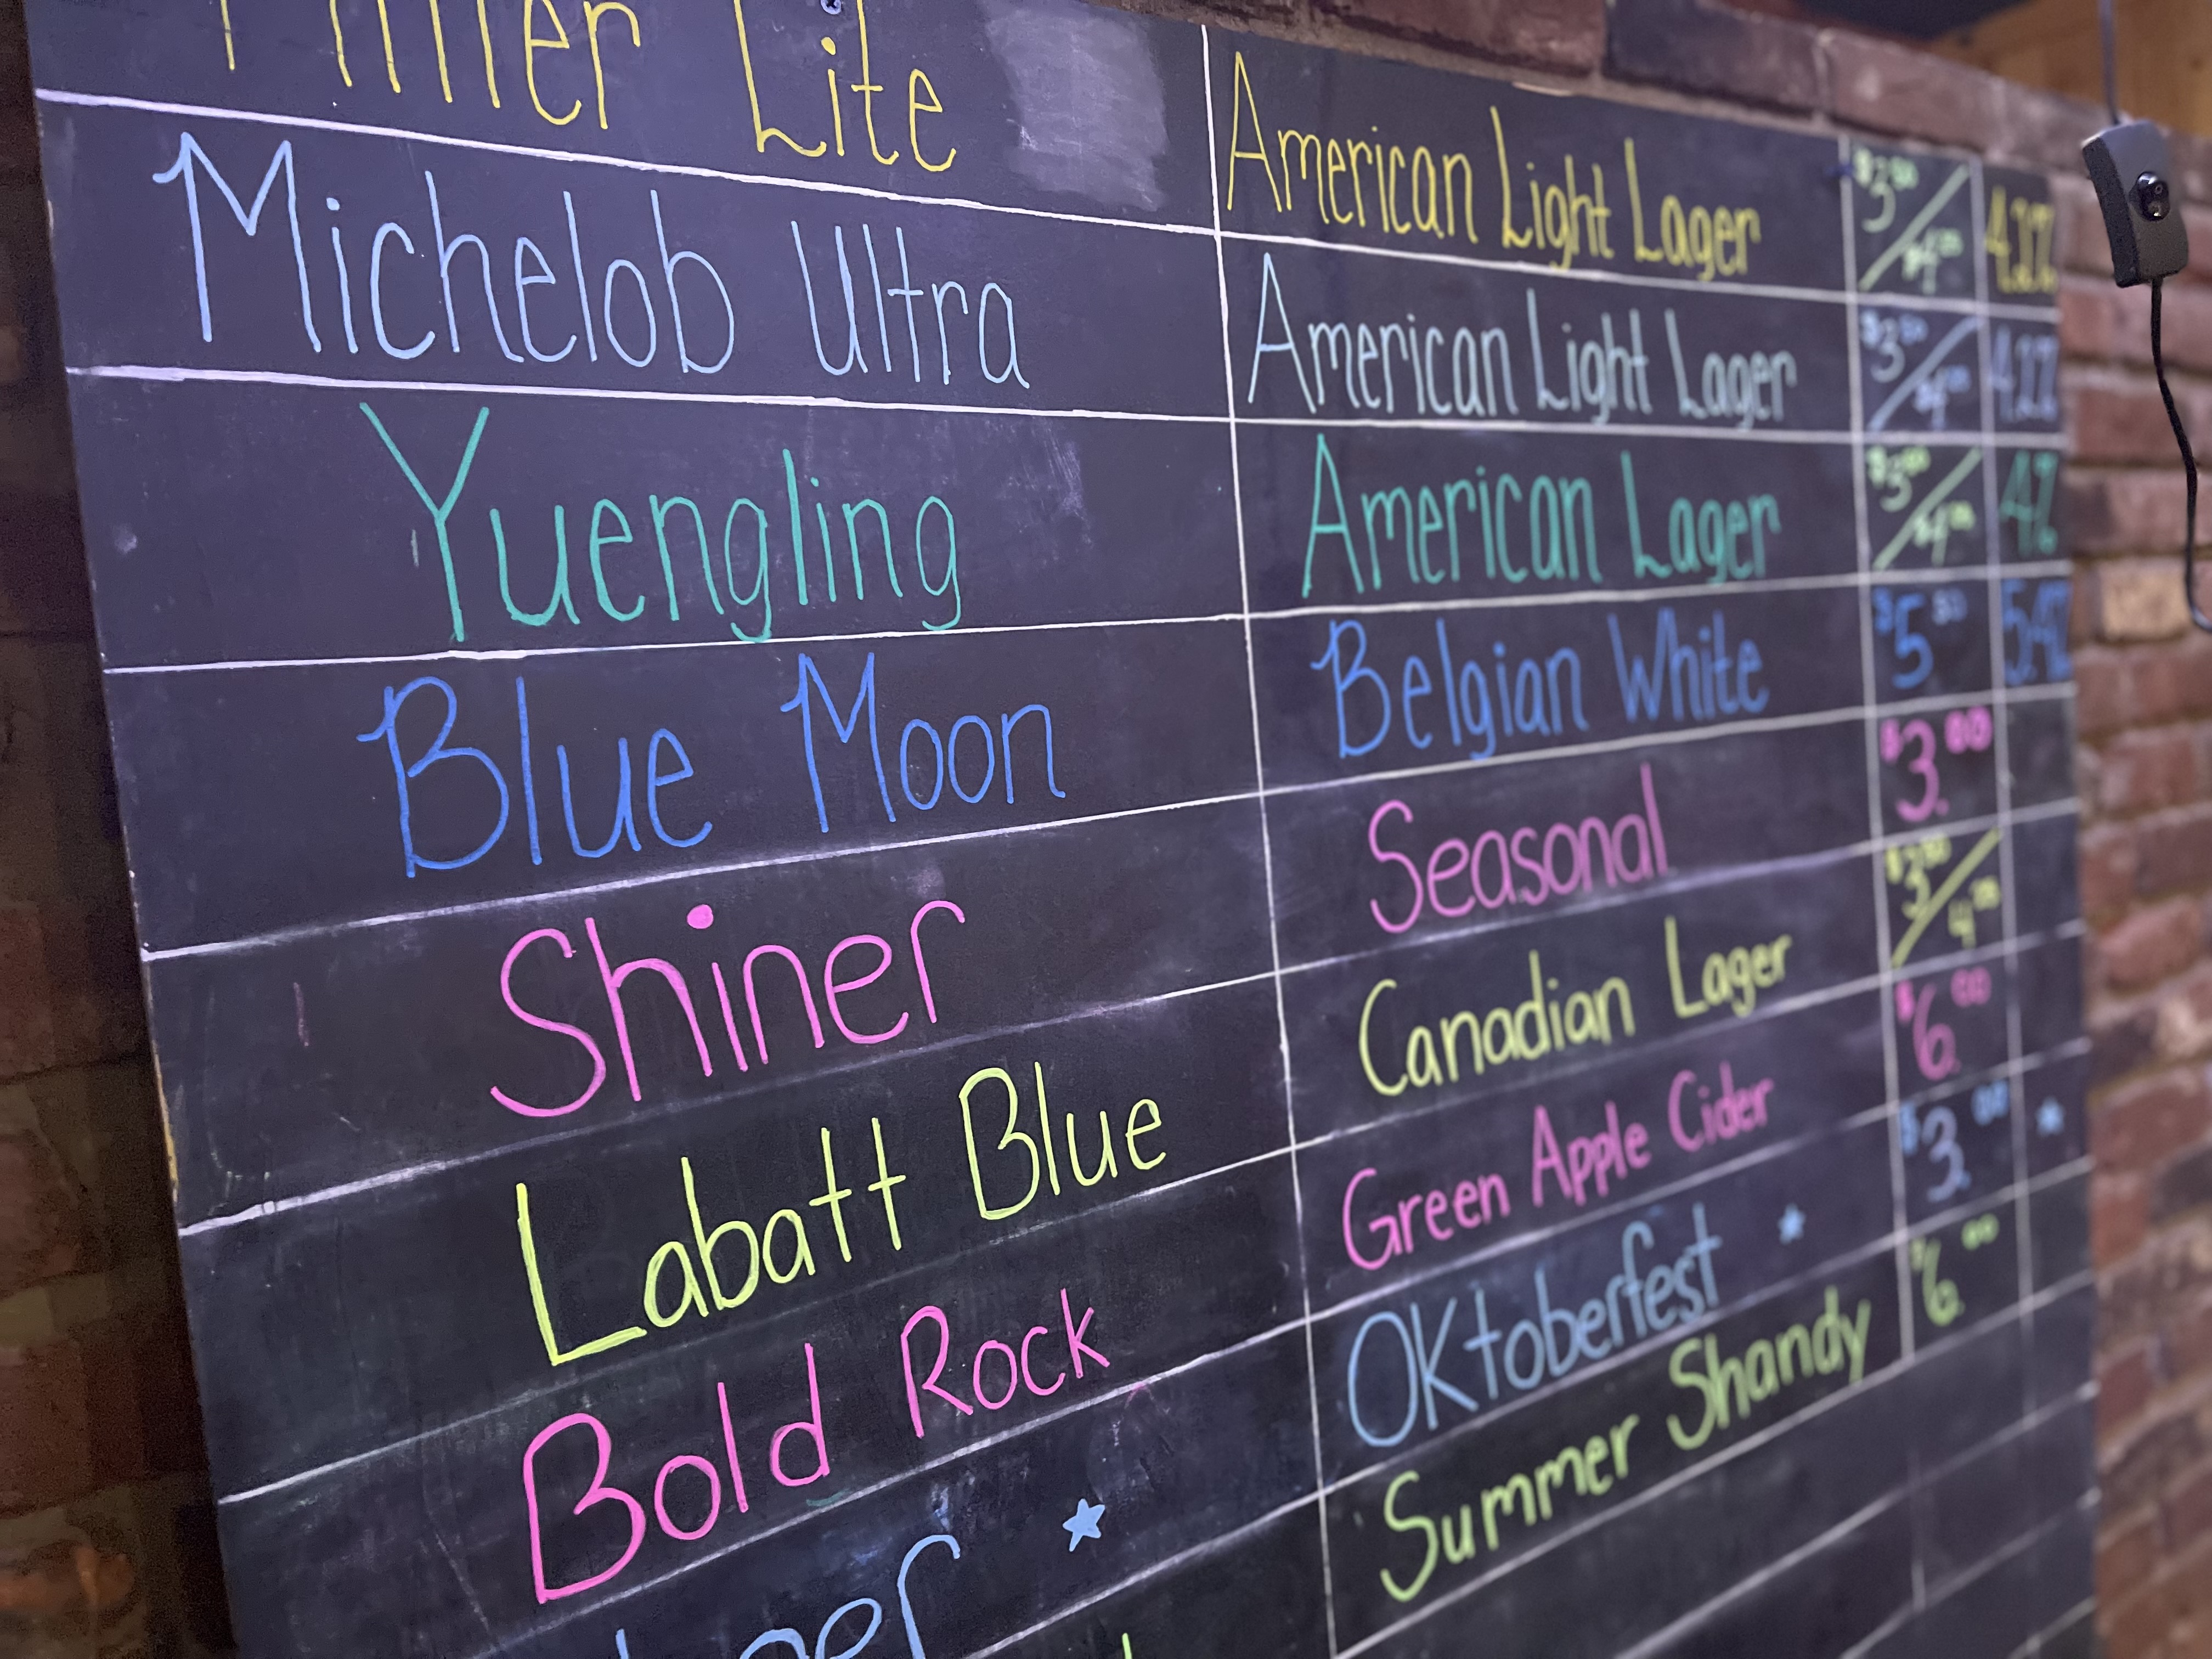 Miller Lite American Light Lager $3⁰⁰/$4⁰⁰ 4.2%
Michelob Ultra American Light Lager $3⁵⁰/$4⁰⁰ 4.2%
Yuengling American Lager $3⁰⁰/$4⁰⁰ 4%
Blue Moon Belgian White $5⁵⁰ 5.4%
Shiner Seasonal $3.⁰⁰
Labatt Blue Canadian Lager $3⁵⁰/4
Bold Rock Green Apple Cider $6.⁰⁰
Oktoberfest $3.⁰⁰
Summer Shandy $6.⁰⁰